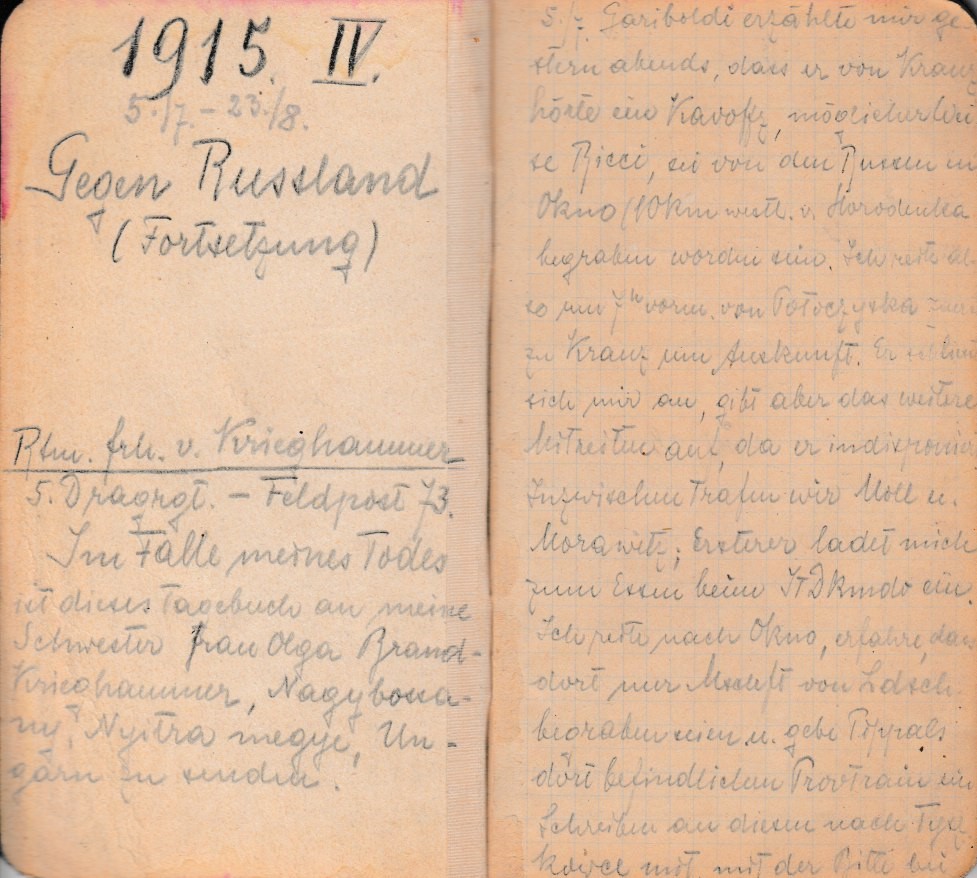 1915. IV.
5./7. - 23./8.
Gegen Russland
(Fortsetzung)
Rtm. Frh. v. Krieghammer
5. Dragrgt. - Feldpost 73.
Im Falle meines Todes
ist dieses Tagebuch an meine
Schwester Frau Olga Brand-
Krieghammer, Nagybossa-
ny, Nyitra megye, Un-
garn zu senden.
5./7. Gariboldi erzählte mir ge-
stern abends, dass er von Kranz
hörte ein Kavoffz, möglicherwei
se Ricci, sei von den Russen in
Okno (10km westl. v. Horodenka
begraben worden sein. Ich reite al-
so um 7h vorm. von Potoczyska
zu Kranz um Auskunft. Er
sich mir an, gibt aber das weitere
Mitreiten auf, da er indisponirt
Inzwischen trafen wir Moll u.
Morawitz; Ersterer ladet mich
zum Essen beim ITDkmdo ein.
Ich reite nach Okno, erfahre, dass
dort nur Mschft von Ldsch
begraben seien u. gebe
dort befindlichen Provtrain ein
Schreiben an diesen nach
mit, mit der Bitte bei